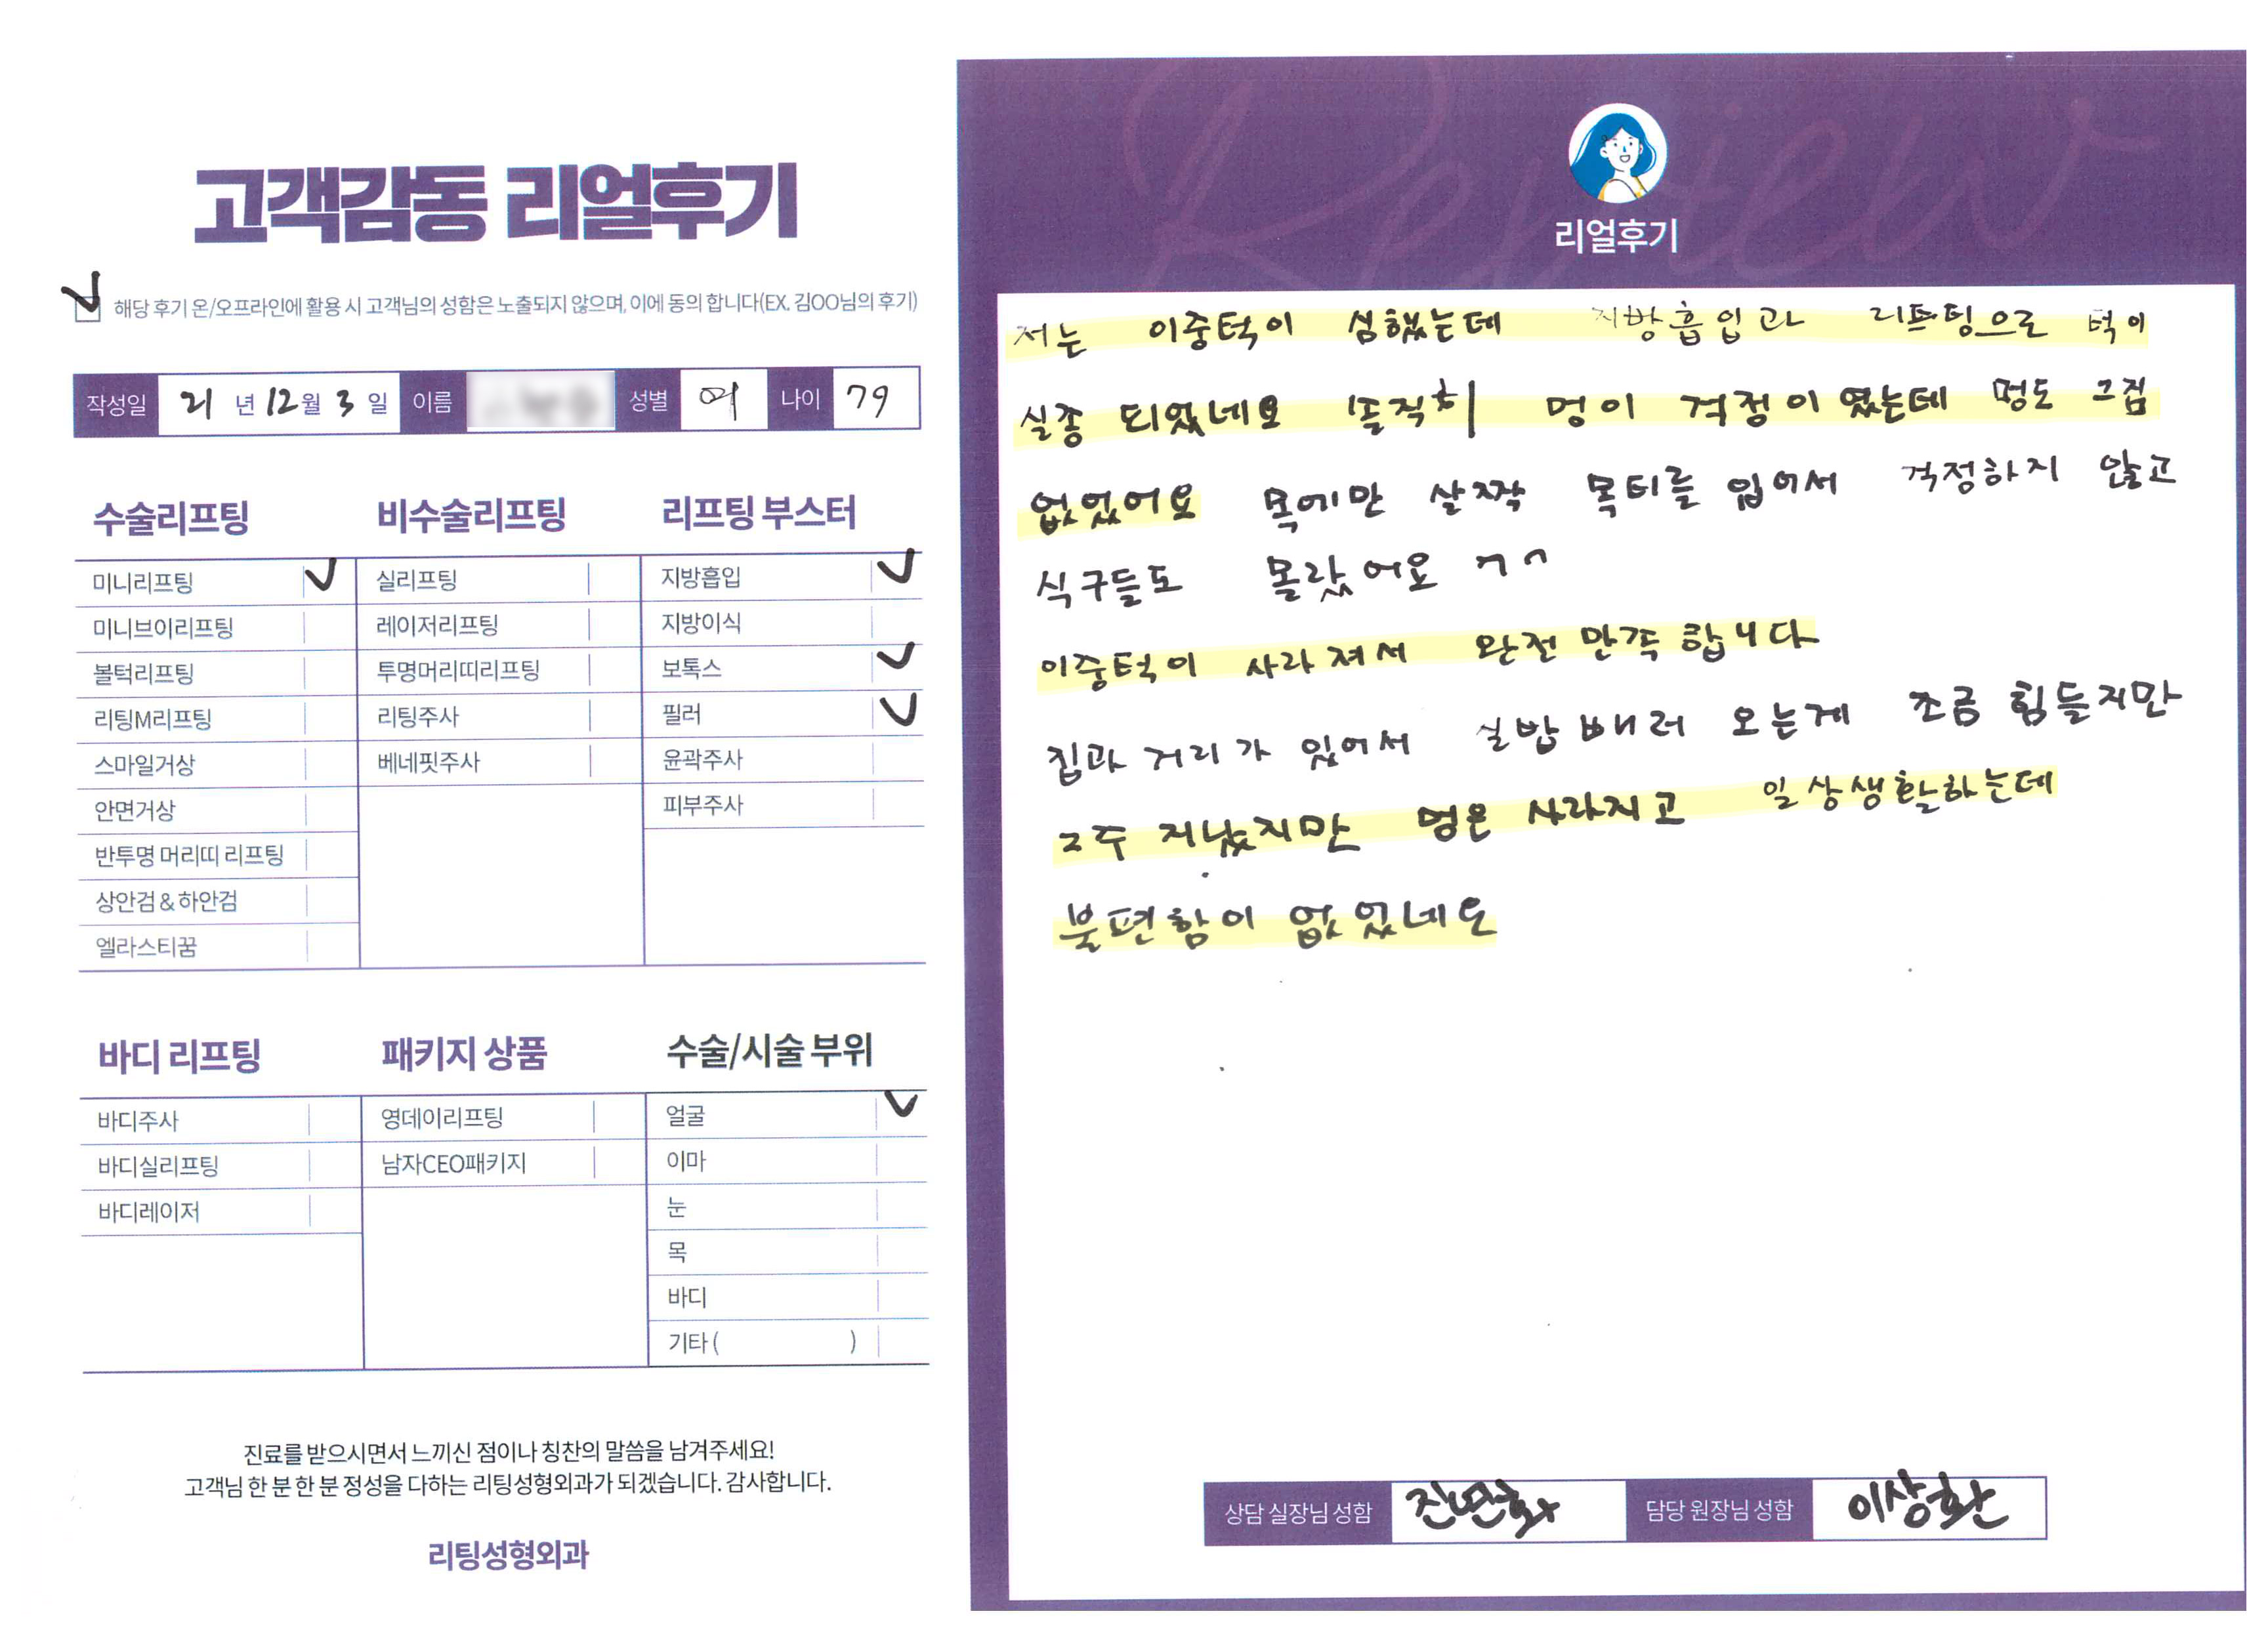 고객감동 리얼후기
해당 후기 온/오프라인에 활용 시 고객님의 성함은 노출되지 않으며, 이에 동의 합니다(EX. 김OO님의 후기)
작성일 21 년 12 월 3 일 이름 성별 여 나이 79
수술리프팅
미니리프팅
미니브이리프팅
볼턱리프팅
리팅M리프팅
스마일거상
안면거상
반투명 머리띠 리프팅
상안검 & 하안검
엘라스티꿈
비수술리프팅
실리프팅
레이저리프팅
투명머리띠리프팅
리팅주사
베네핏주사
리프팅 부스터
지방흡입
지방이식
보톡스
필러
윤곽주사
피부주사
바디 리프팅
바디주사
바디실리프팅
바디레이저
패키지 상품
영데이리프팅
남자CEO패키지
수술/시술 부위
얼굴
이마
눈
목
바디
기타 ( )
진료를 받으시면서 느끼신 점이나 칭찬의 말씀을 남겨주세요!
고객님 한 분 한 분 정성을 다하는 리팅성형외과가 되겠습니다. 감사합니다.
리팅성형외과
Review
리얼후기
저는 이중턱이 심했는데 지방흡입과 리프팅으로 턱이
실종 되었네요 솔직히 멍이 걱정이였는데 멍도 크게
없었어요 목에만 살짝 목티를 입어서 걱정하지 않고
식구들도 몰랐어요 ㄱㄱ
이중턱이 사라져서 완전 만족 합니다
집과 거리가 있어서 실밥 빼러 오는게 조금 힘들지만
2주 지났지만 멍은 사라지고 일상생활하는데
불편함이 없었네요
상담 실장님 성함 담당 원장님 성함 이상환